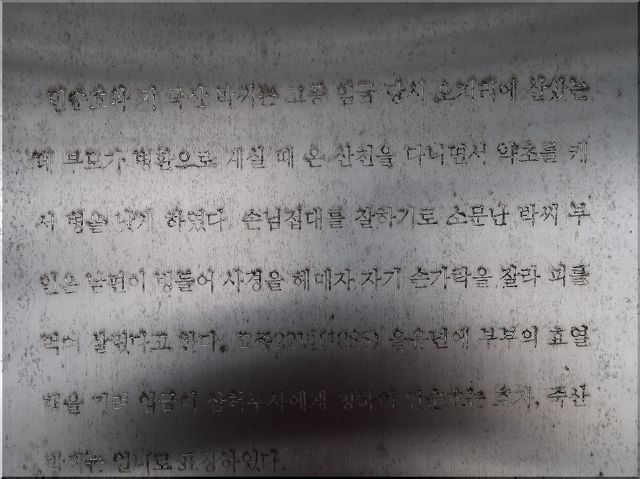 민순호와 처 죽산 박씨는 고종 임금 당시 오지리에 살았는
데 부모가 병환으로 계실 때 온 산천을 다니면서 약초를 캐
서 병을 낫게 하였다. 손님접대를 잘하기로 소문난 박씨 부
인은 남편이 병들어 사경을 헤매자 자기 손가락을 잘라 피를
먹여 살렸다고 한다. 고종22년(1885) 을유년에 부부의 효열
행을 기려 임금이 명하여 효자, 죽산
박씨는 열녀로 표창하였다.